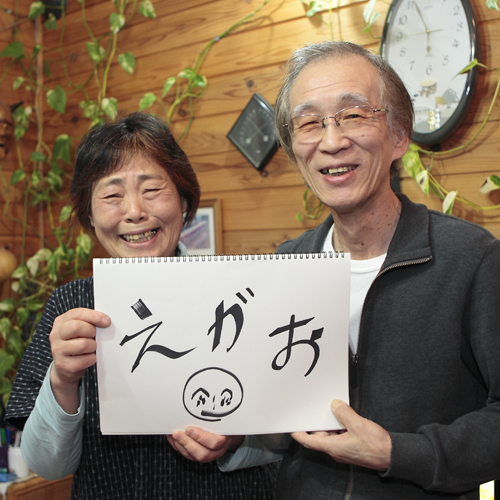 えがお